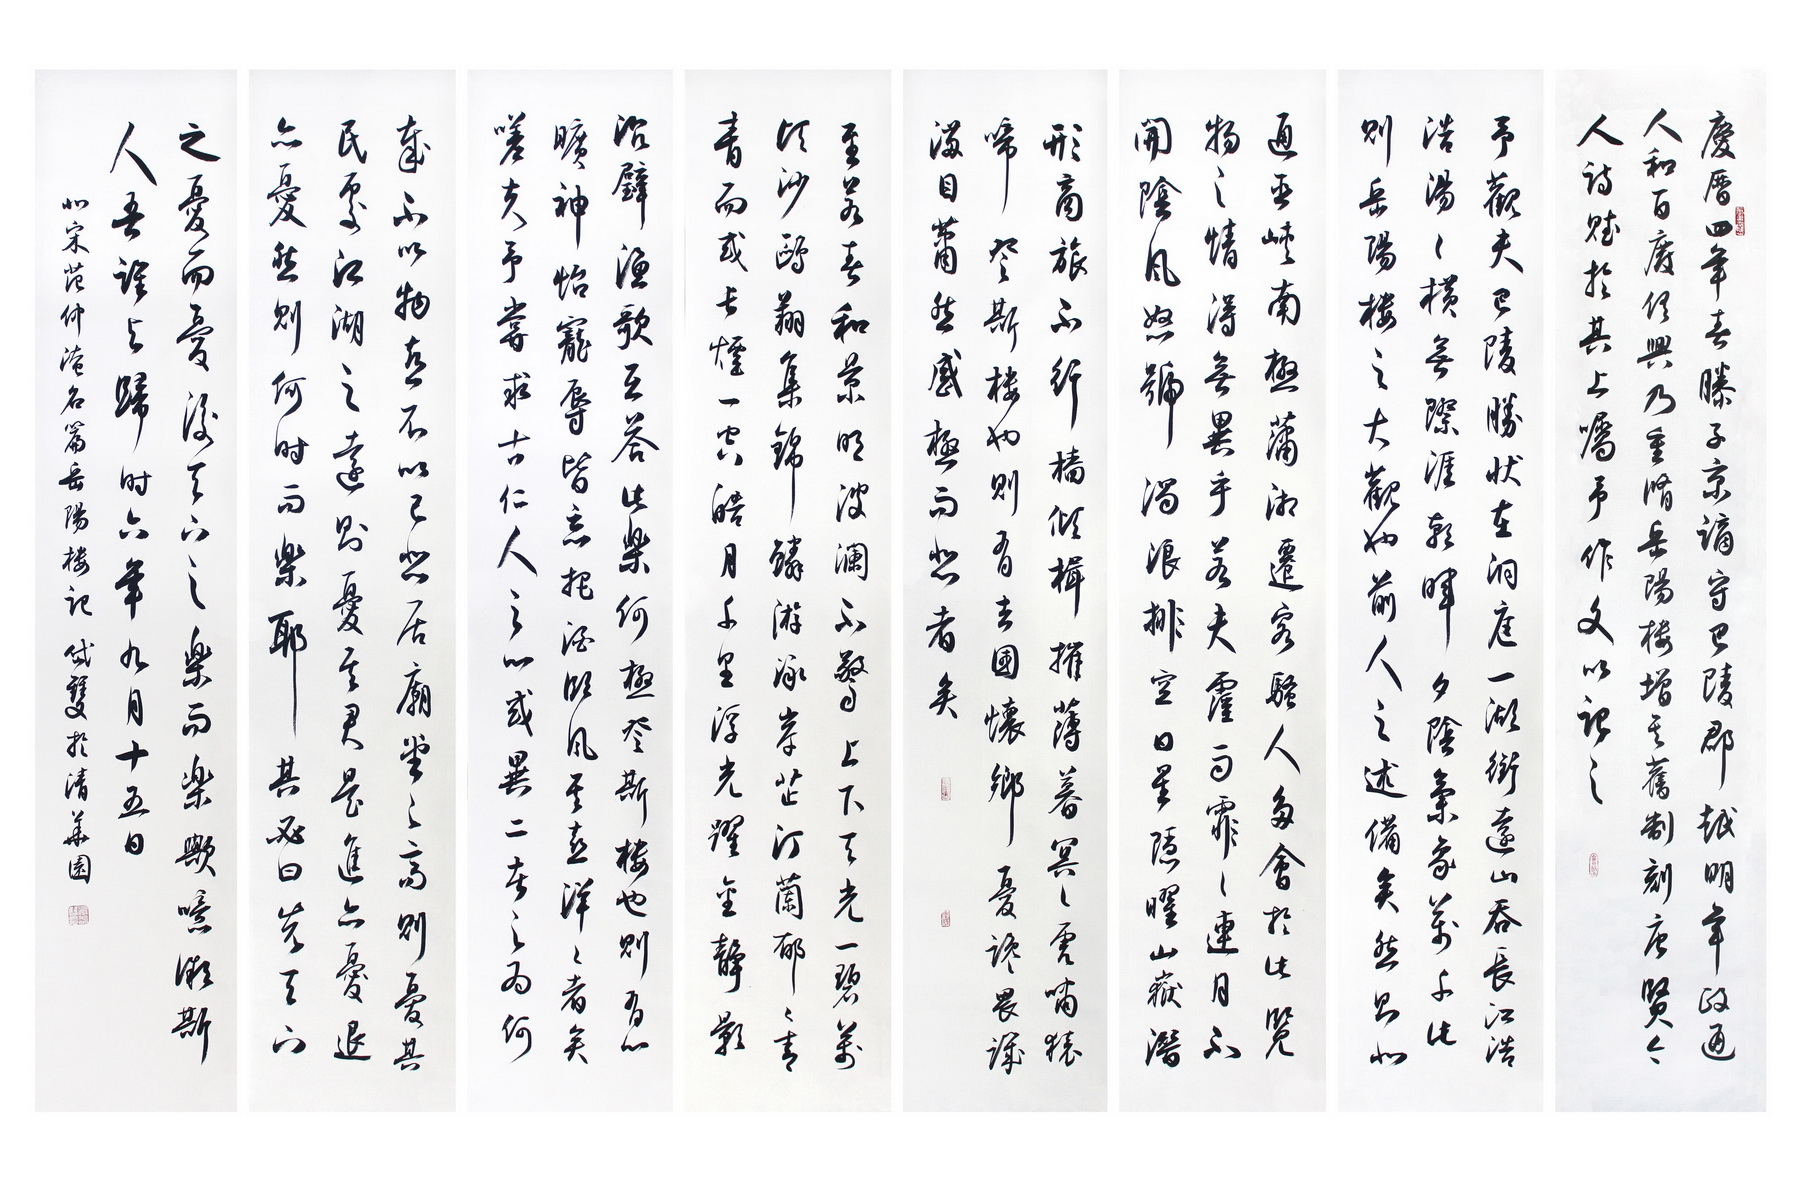 慶曆四年春滕子京謫守巴陵郡越明年政通
人和百廢俱興乃重脩岳陽樓增其舊制刻唐賢今
人詩賦於其上囑予作文以記之
予觀夫巴陵勝狀在洞庭一湖銜遠山吞長江浩
浩湯〻橫無際涯朝暉夕陰氣象萬千此
則岳陽樓之大觀也前人之述備矣然則北
通巫峽南極瀟湘遷客騷人多會於此覽
物之情得無異乎若夫霪雨霏〻連月不
開陰風怒號濁浪排空日星隱曜山嶽潛
形商旅不行檣傾楫摧薄暮冥〻虎嘯猿
啼登斯樓也則有去國懷鄉憂讒畏譏
滿目蕭然感極而悲者矣
至若春和景明波瀾不驚上下天光一碧萬
頃沙鷗翔集錦鱗游泳岸芷汀蘭郁〻青
青而或長煙一空皓月千里浮光躍金靜影
沉璧漁歌互答此樂何極登斯樓也則有心
曠神怡寵辱皆忘把酒臨風其喜洋〻者矣
嗟夫予嘗求古仁人之心或異二者之為何
哉不以物喜不以己悲居廟堂之高則憂其
民處江湖之遠則憂其君是進亦憂退
亦憂然則何时而樂耶其必曰先天下
之憂而憂後天下之樂而樂歟噫微斯
人吾誰與歸时六年九月十五日
北宋范仲淹名篇岳陽樓記 岱雙於清華園